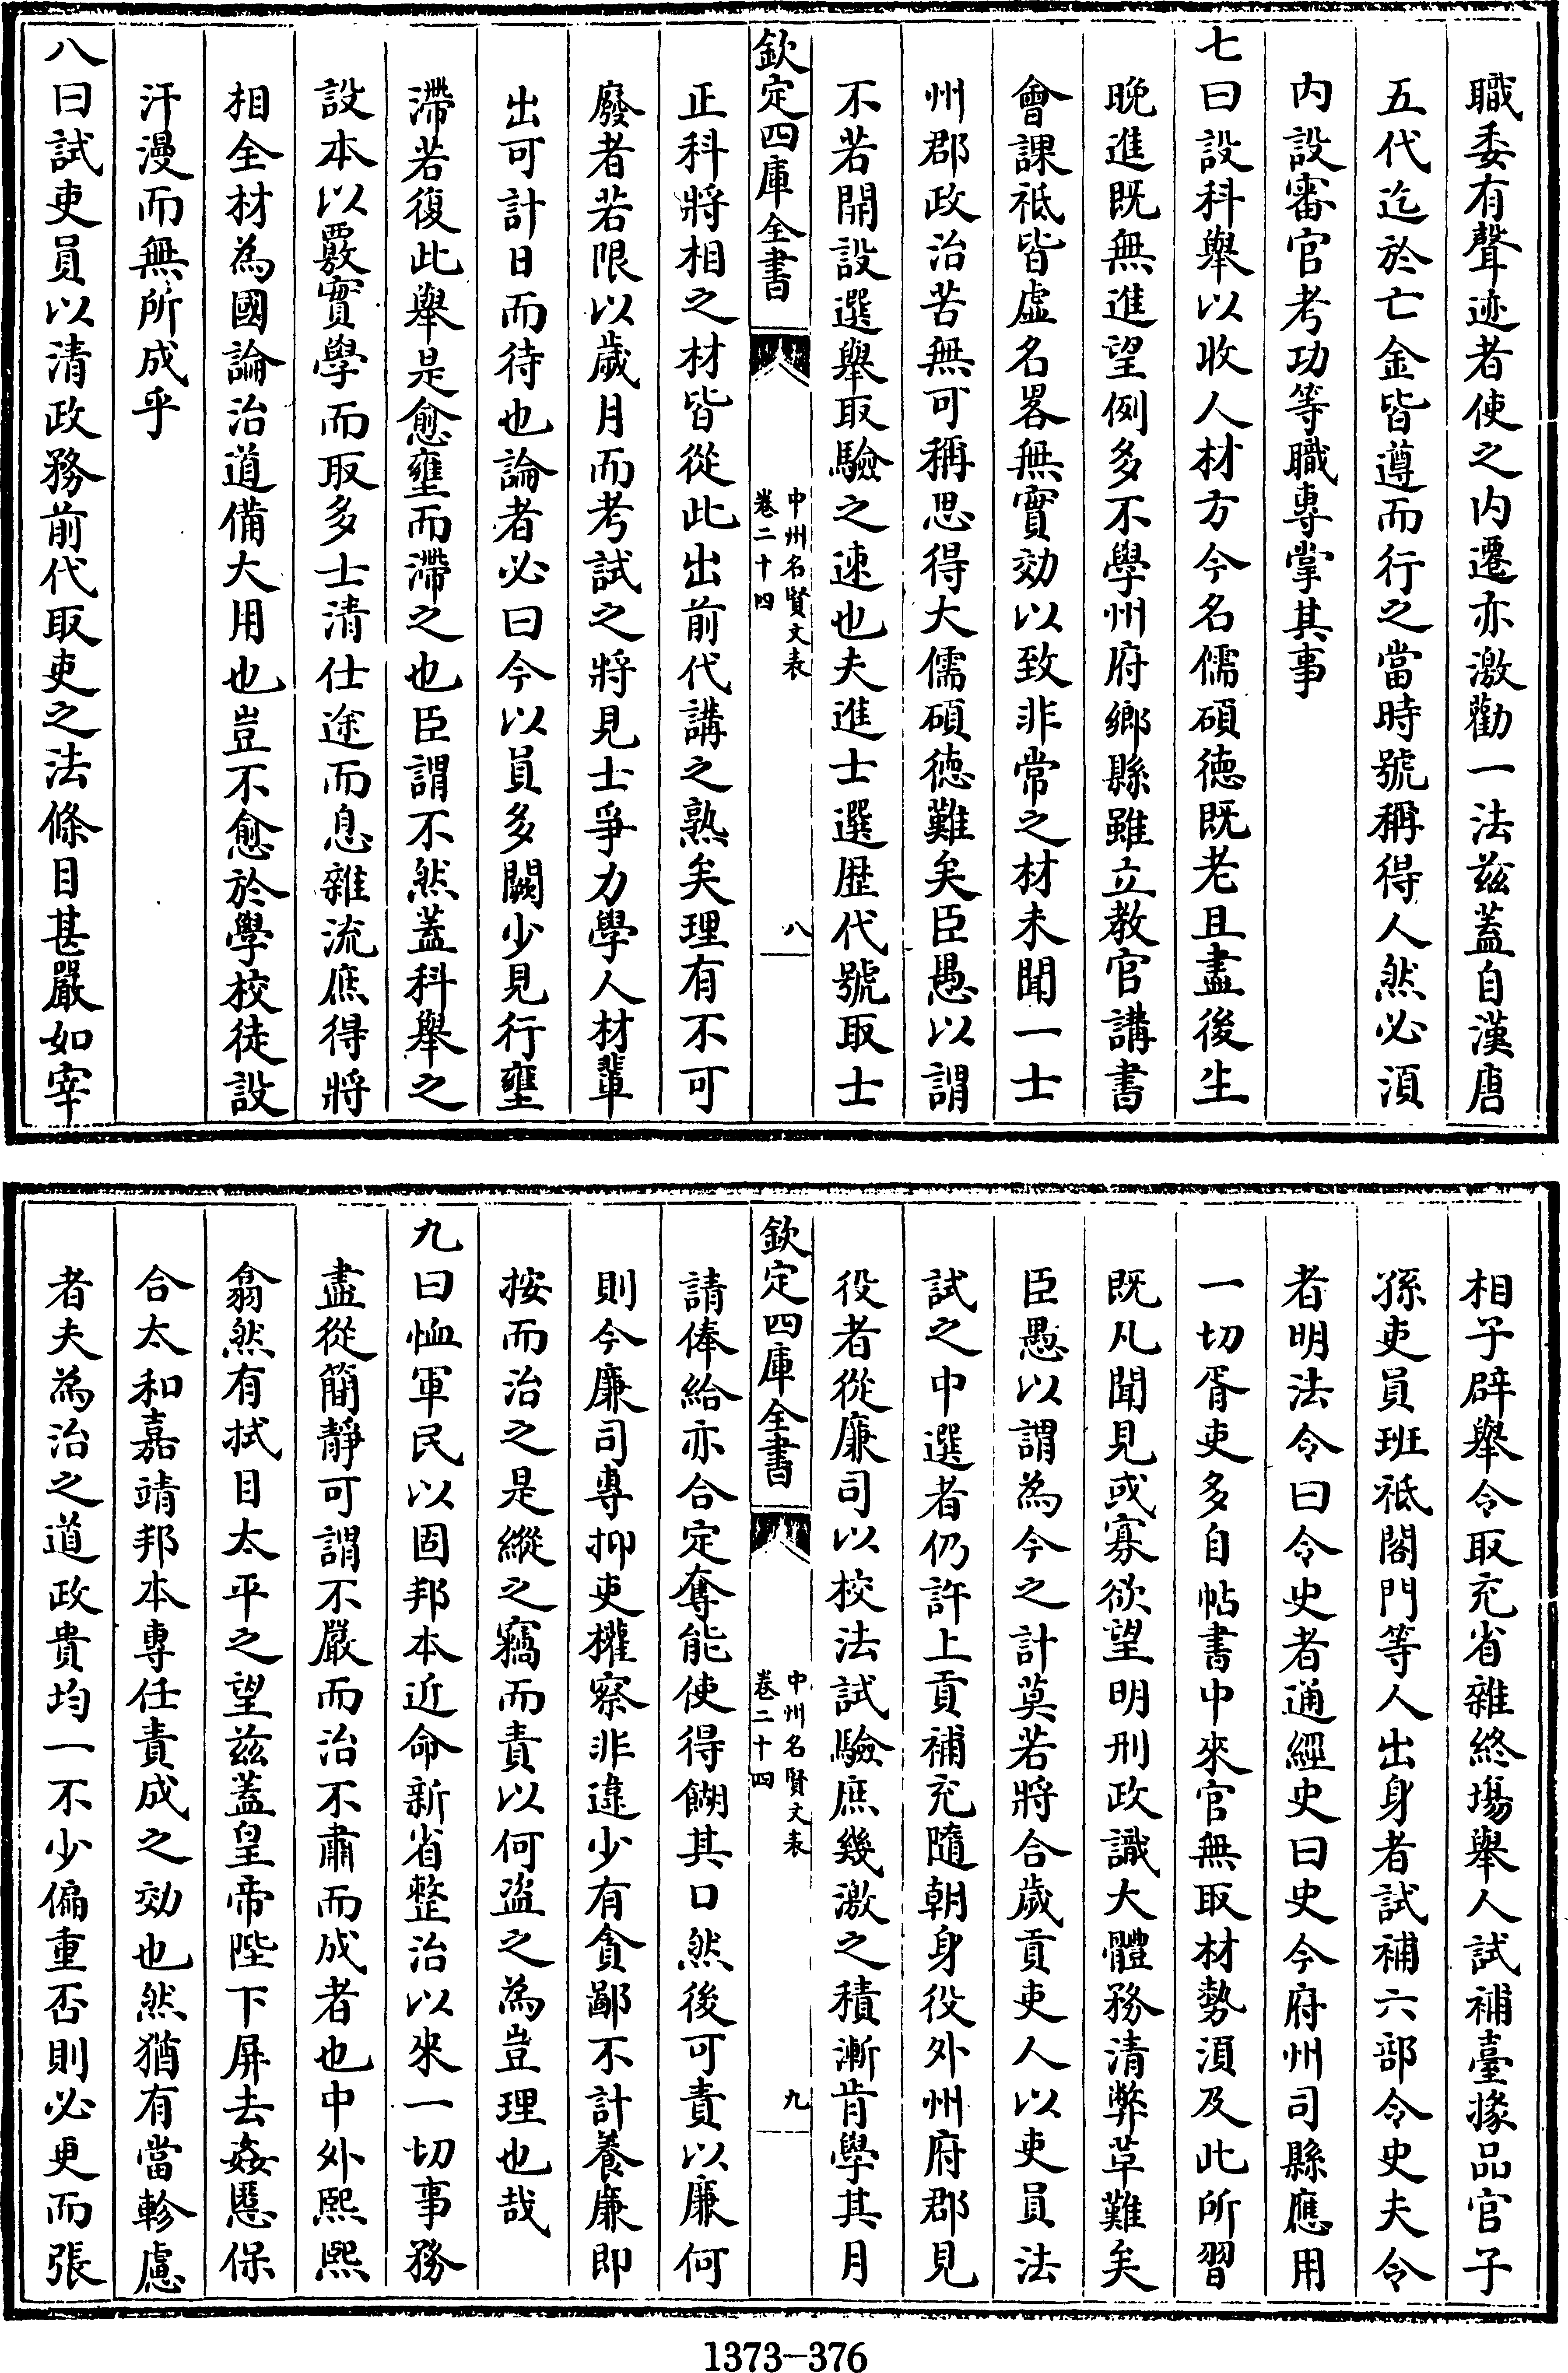 職委有聲迹者使之内遷亦激勸一法兹蓋自漢唐
五代迄於亡金皆遵而行之當時號稱得人然必須
内設審官考功等職專掌其事
七曰設科舉以收人材方今名儒碩徳既老且盡後生
晚進既無進望例多不學州府鄉縣雖立教官講書
會課祗皆虚名畧無實効以致非常之材未聞一士
州郡政治苦無可稱思得大儒碩徳難矣臣愚以謂
不若開設選舉取驗之速也夫進士選歴代號取士
欽定四庫全書
中州名賢文表
卷二十四
八
正科將相之材皆從此出前代講之熟矣理有不可
廢者若限以歲月而考試之將見士爭力學人材輩
出可計日而待也論者必曰今以員多闕少見行壅
滯若復此舉是愈壅而滯之也臣謂不然蓋科舉之
設本以覈實學而取多士清仕途而息雜流庶得將
相全材為國論治道備大用也豈不愈於學校徒設
汗漫而無所成乎
八曰試吏員以清政務前代取吏之法條目甚嚴如宰
相子辟舉令取充省雜終塲舉人試補臺掾品官子
孫吏員班祗閤門等人出身者試補六部令史夫令
者明法令曰令史者通經史曰史今府州司縣應用
一切胥吏多自帖書中來官無取材勢須及此所習
既凡聞見或寡欲望明刑政識大體務清弊草難矣
臣愚以謂為今之計莫若將合歲貢吏人以吏員法
試之中選者仍許上貢補充隨朝身役外州府郡見
役者從廉司以校法試驗庶幾激之積漸肯學其月
欽定四庫全書
中州名賢文表
卷二十四
九
請俸給亦合定奪能使得餬其口然後可責以廉何
則今廉司專抑吏權察非違少有貪鄙不計養廉即
按而治之是縱之竊而責以何盗之為豈理也哉
九曰恤軍民以固邦本近命新省整治以來一切事務
盡從簡靜可謂不嚴而治不肅而成者也中外熙熙
翕然有拭目太平之望兹蓋皇帝陛下屏去姦慝保
合太和嘉靖邦本專任責成之効也然猶有當軫慮
者夫為治之道政貴均一不少偏重否則必更而張
1373-376